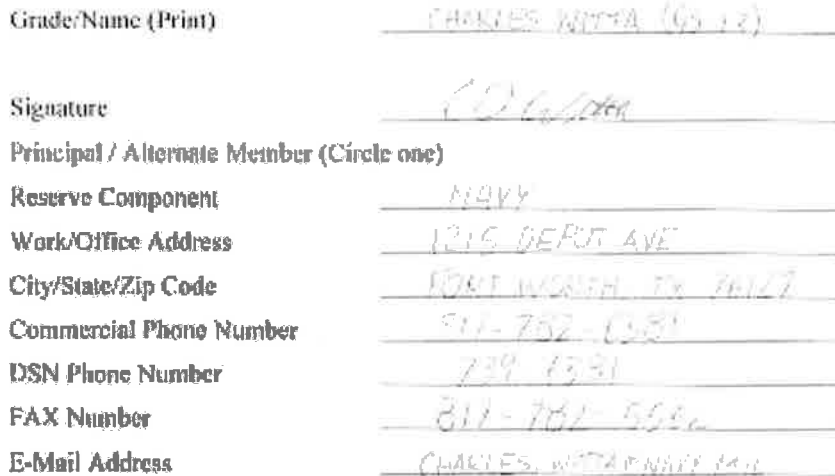 Grade/Name (Print) CHARLES WITTA (GS 12)
Signature
Principal / Alternate Member (Circle one)
Reserve Component NAVY
Work/Office Address 1215 DEPOT AVE
City/State/Zip Code FORT WORTH, TX 76127
Commercial Phone Number 817-782-
DSN Phone Number 739
FAX Number 817-782-
E-Mail Address CHARLES.WITTA@NAVY.MIL